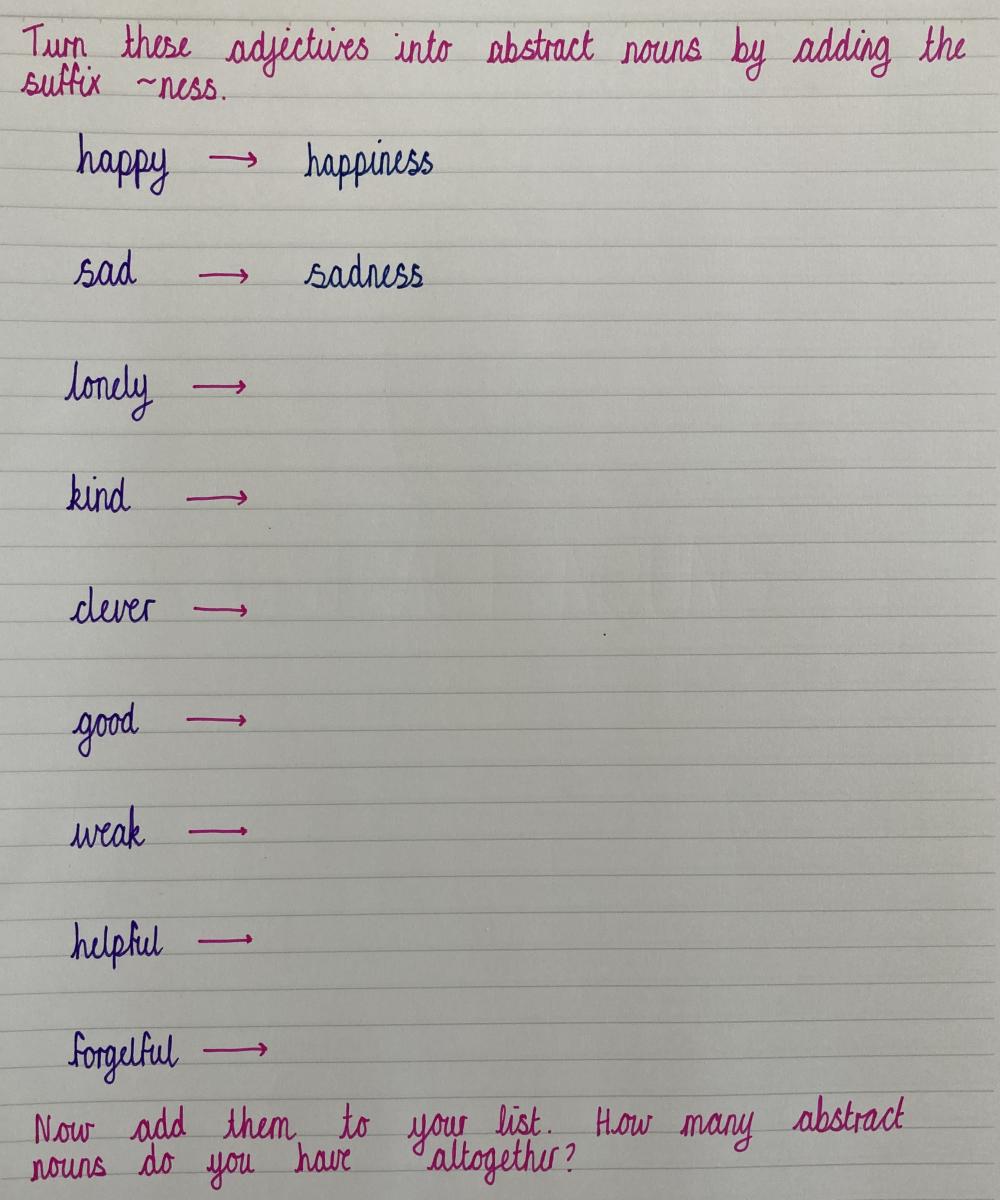 Turn these adjectives into abstract nouns by adding the
suffix ~ness.
happy → happiness
sad → sadness
lonely →
kind →
clever →
good →
weak →
helpful →
forgetful →
Now add them to your list. How many abstract
nouns do you have altogether?